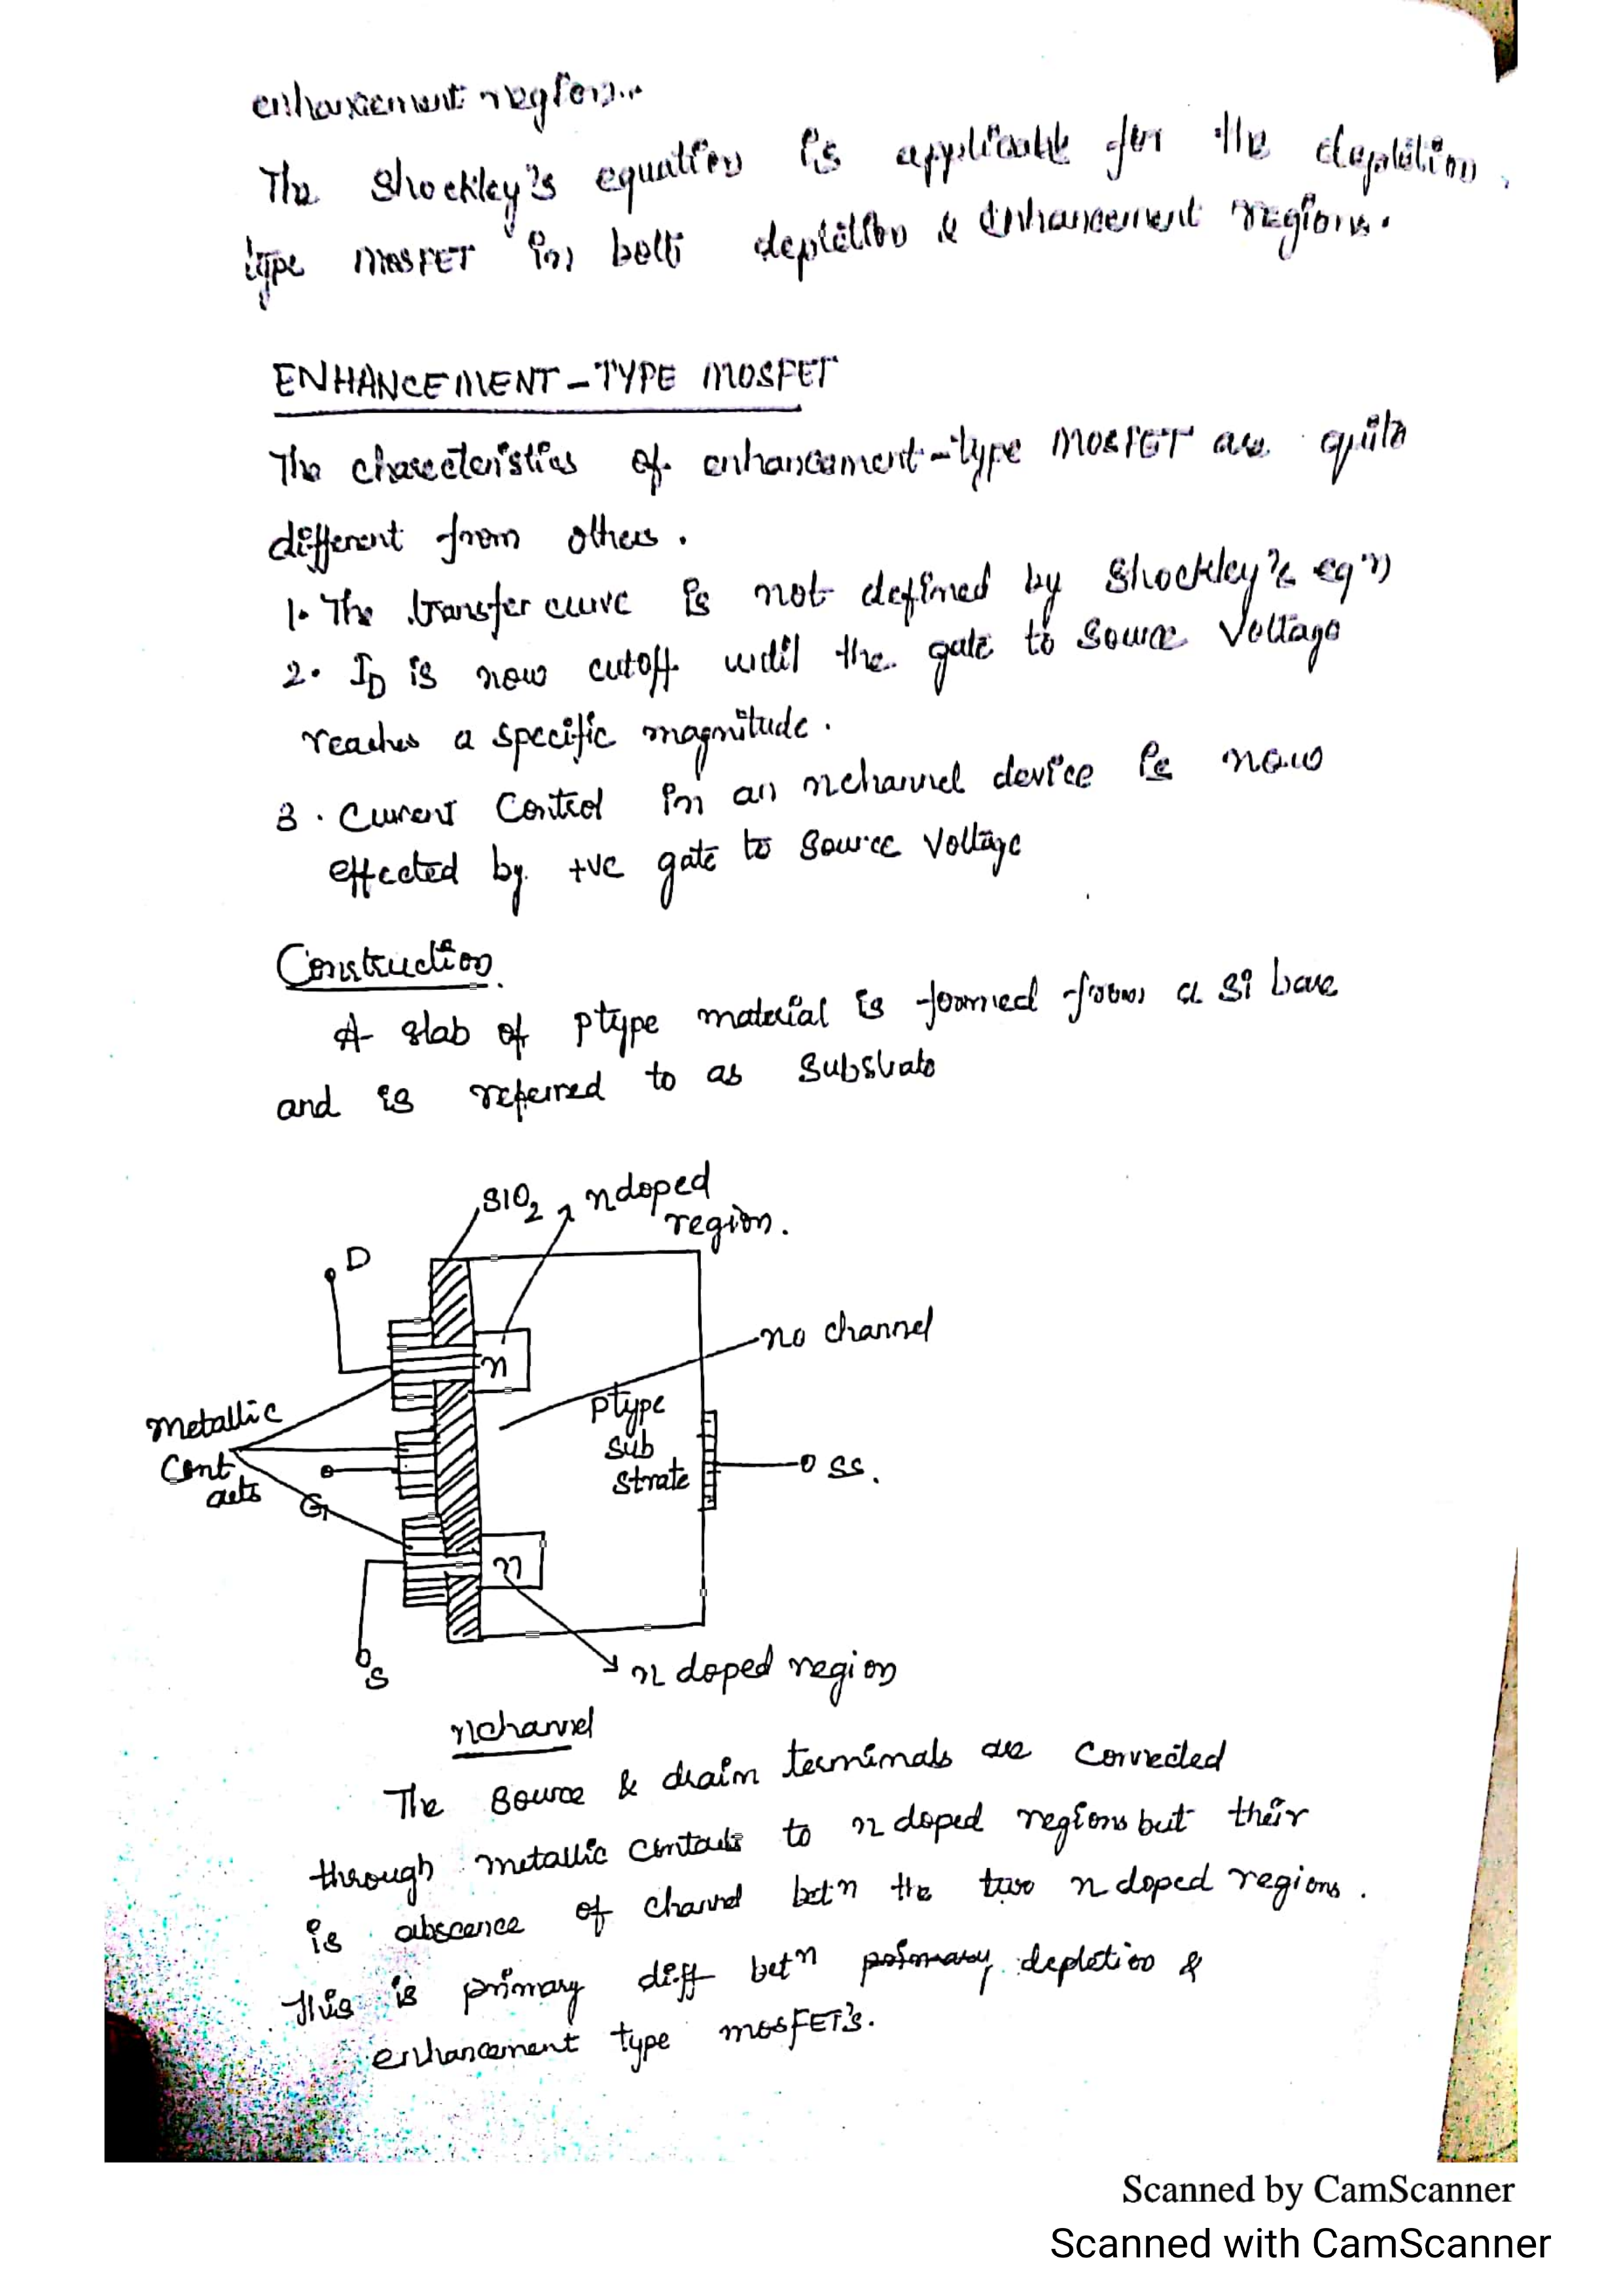 enhancement region..
The Shockley's equation is applicable for the depletion
type MOSFET in both depletion & enhancement regions.
ENHANCEMENT-TYPE MOSFET
The charecteristics of enhancement-type MOSFET are quite
different from others.
1. The transfer curve is not defined by Shockley's eqn
2. ID is now cutoff until the gate to source voltage
reaches a specific magnitude.
3. Current Control in an nchannel device is now
effected by +ve gate to source voltage
Construction
A slab of ptype material is formed from a si base
and is referred to as substrate
SIO2
n doped
region.
D
n
no channel
Metallic
Cont
acts
ptype
sub
strate
SS.
G
n
S
n doped region
nchannel
The source & drain terminals are connected
through metallic contacts to n doped regions but their
is abscence of channel betn the two n doped regions.
This is primary diff betn primary depletion &
enhancement type mosFET's.
Scanned by CamScanner
Scanned with CamScanner